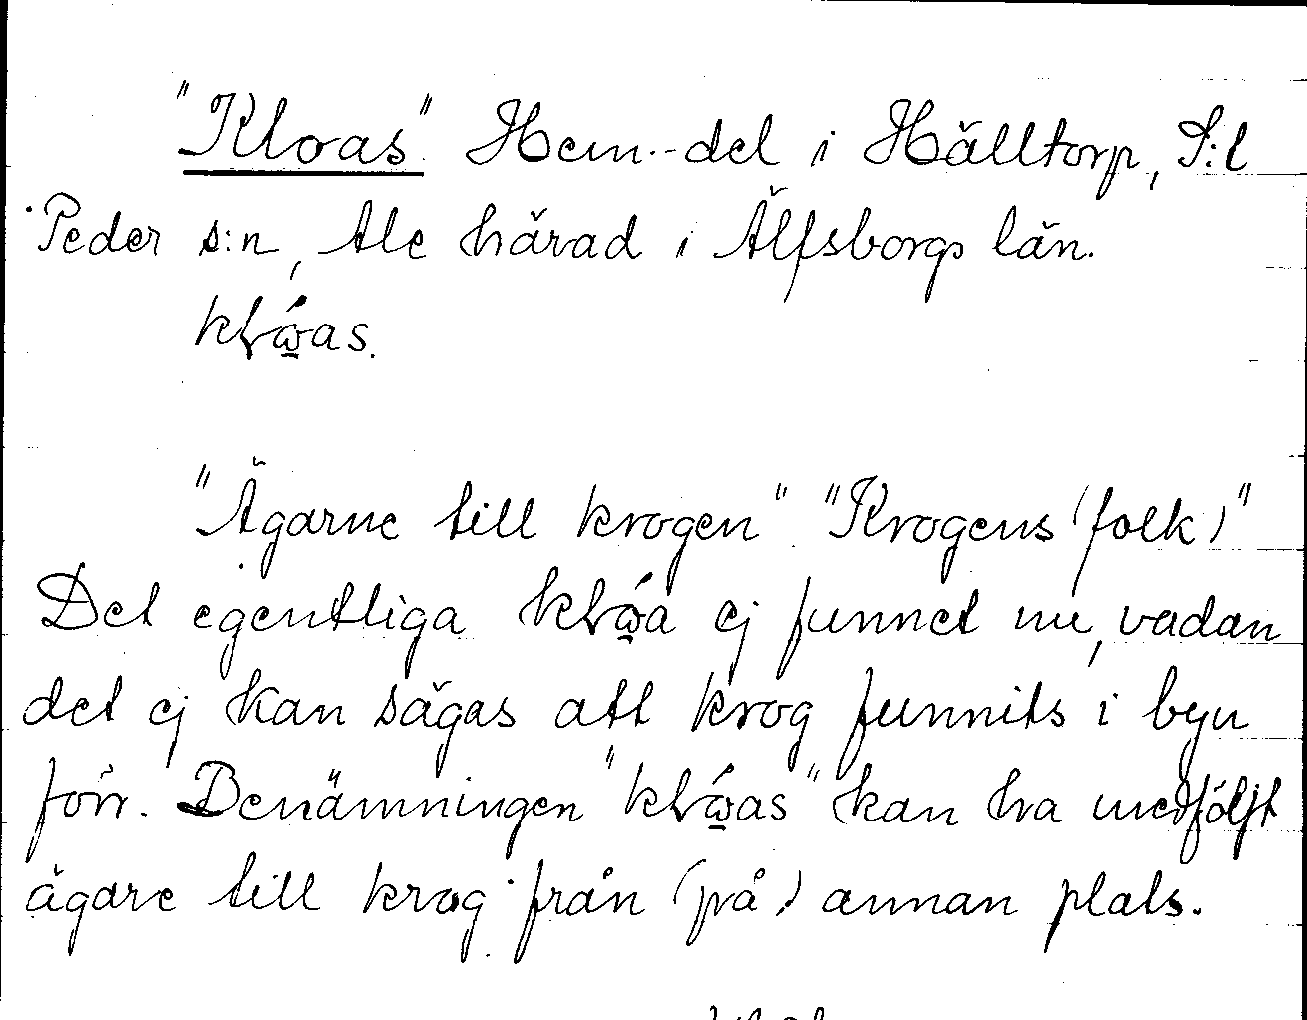 "Kloas" Hem.-del i Hälltorp, S:t
Peder s:n, Ale härad i Älfsborgs län.
kɽώ̲as.
"Ägarne till krogen" "Krogens (folk)"
Det egentliga kɽώ̲a ej funnet nu, vadan
det ej kan sägas att krog funnits i byn
förr. Benämningen "kɽώ̲as" kan ha medföljt
ägare till krog från (på) annan plats.